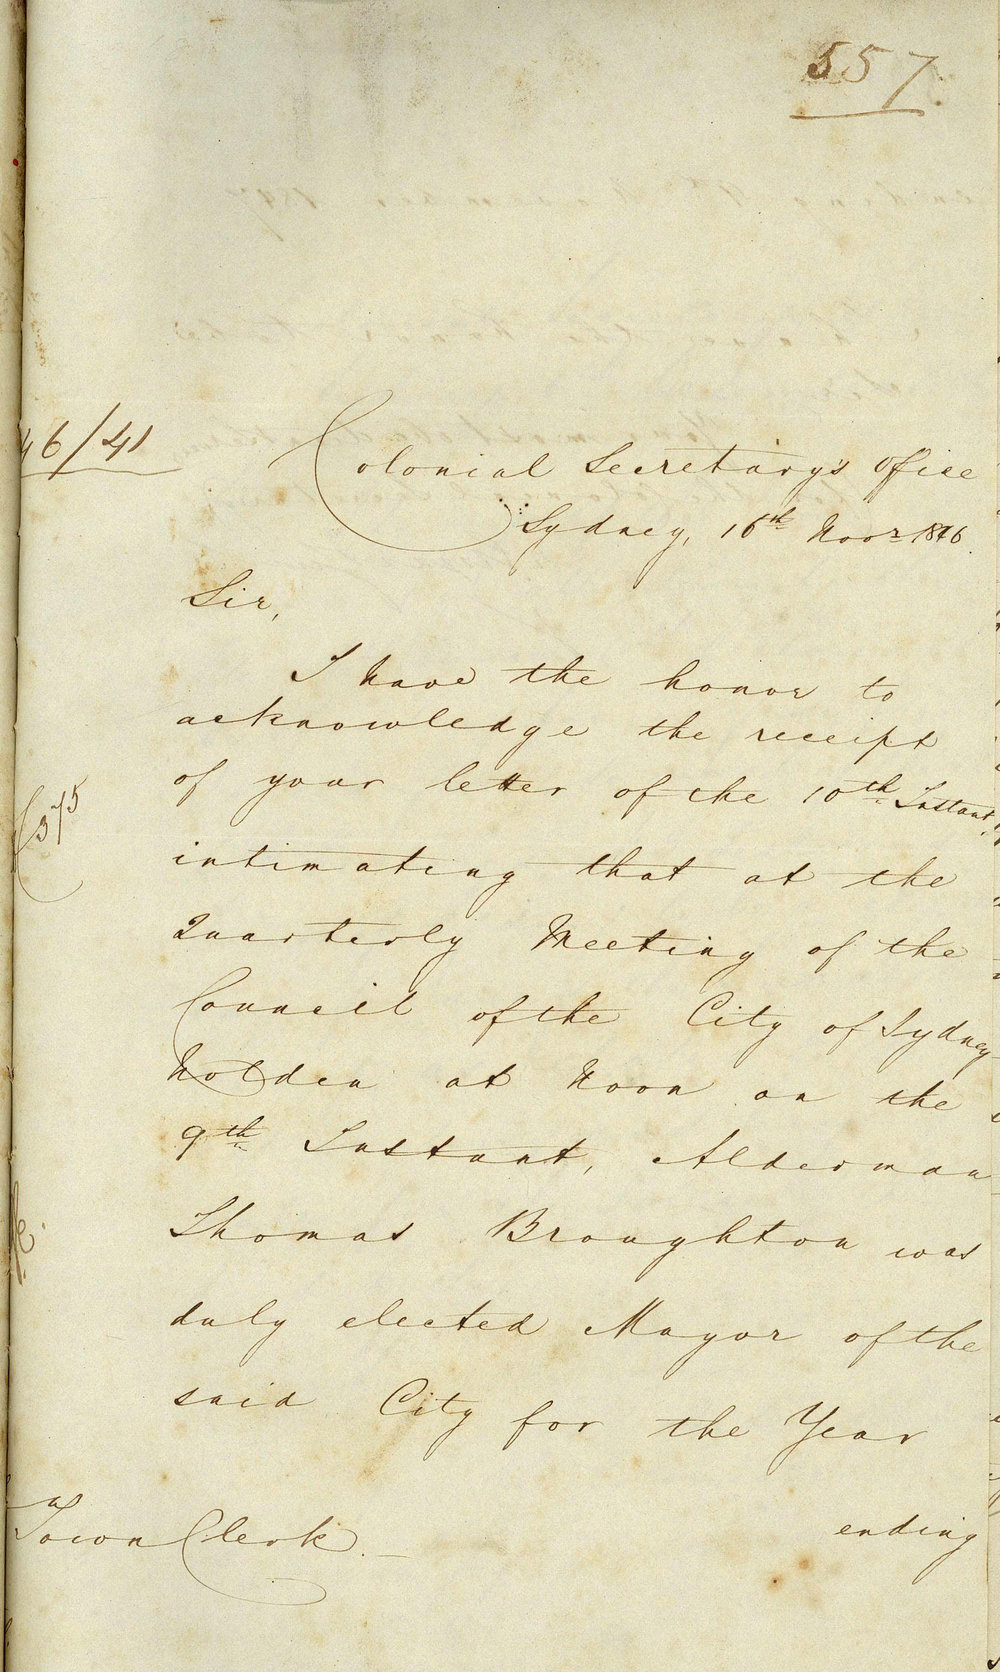 557.
46/41
Colonial Secretary's Office
Sydney, 16th Novr 1846.
Sir,
I have the honor to
acknowledge the receipt
of your letter of the 10th Instant,
375
intimating that at the
Quarterly Meeting of the
Council of the City of Sydney
Holden at Noon on the
9th Instant, Alderman
Thomas Broughton was
duly elected Mayor of the
said City for the Year
ending
Town Clerk.